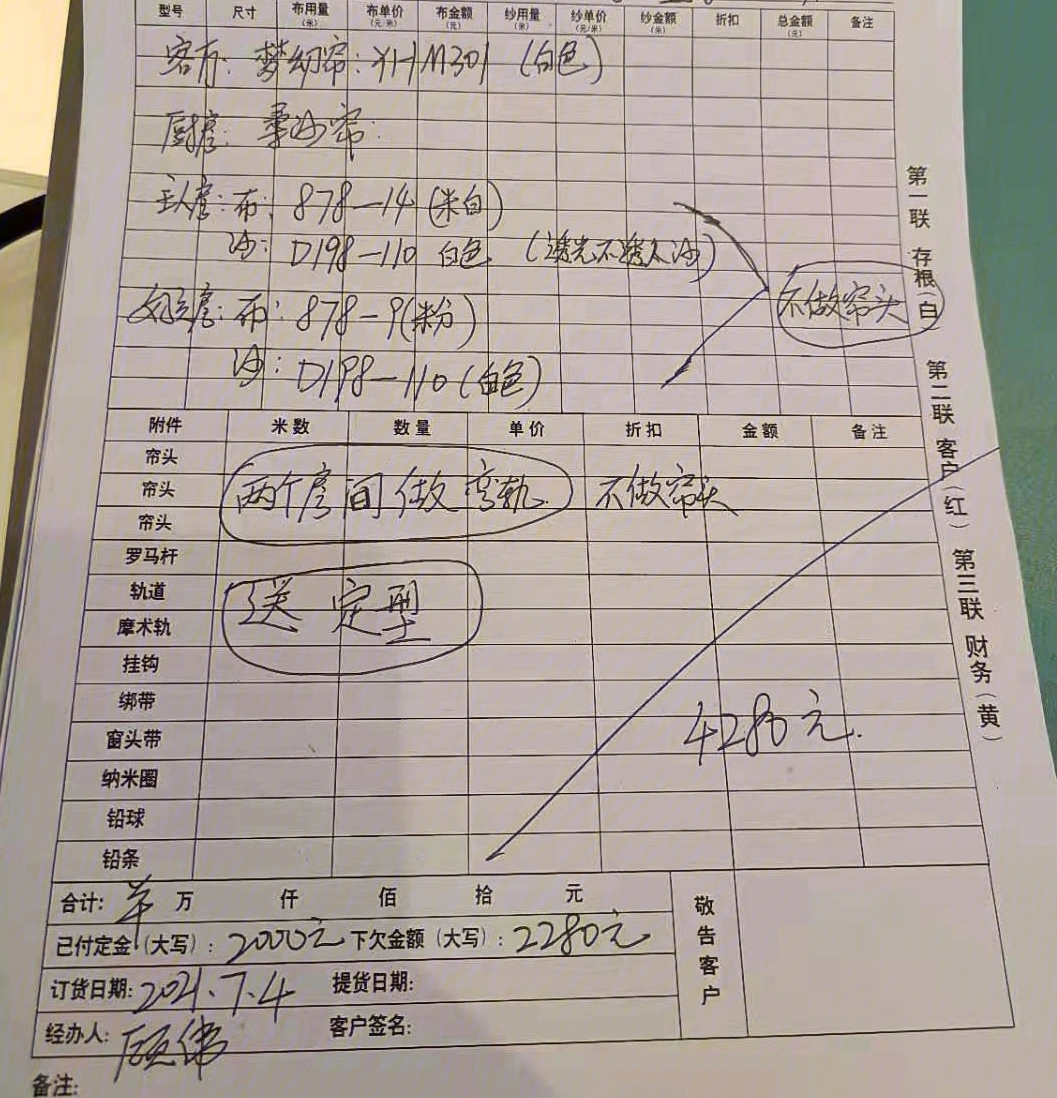 型号 尺寸 布用量(米) 布单价(元/米) 布金额(元) 纱用量(米) 纱单价(元/米) 纱金额(米) 折扣 总金额(元) 备注
客厅: 梦幻帘: YHM301 (白色)
厨房: 柔沙帘.
主人房: 布: 878-14 (米白)
沙: D198-110 白色 (透光不透人沙)
不做帘头
女儿房: 布: 878-9(米粉)
沙: D198-110 (白色)
附件 米数 数量 单价 折扣 金额 备注
帘头
帘头 两个房间做弯轨 不做帘头
帘头
罗马杆
轨道 送定型
摩术轨
挂钩
绑带
窗头带 4280元.
纳米圈
铅球
铅条
合计: 万 仟 佰 拾 元
已付定金(大写): 2000元 下欠金额(大写): 2280元
订货日期: 2021.7.4 提货日期:
经办人: 顾伟 客户签名:
敬告客户
备注:
第一联 存根(白) 第二联 客户(红) 第三联 财务(黄)